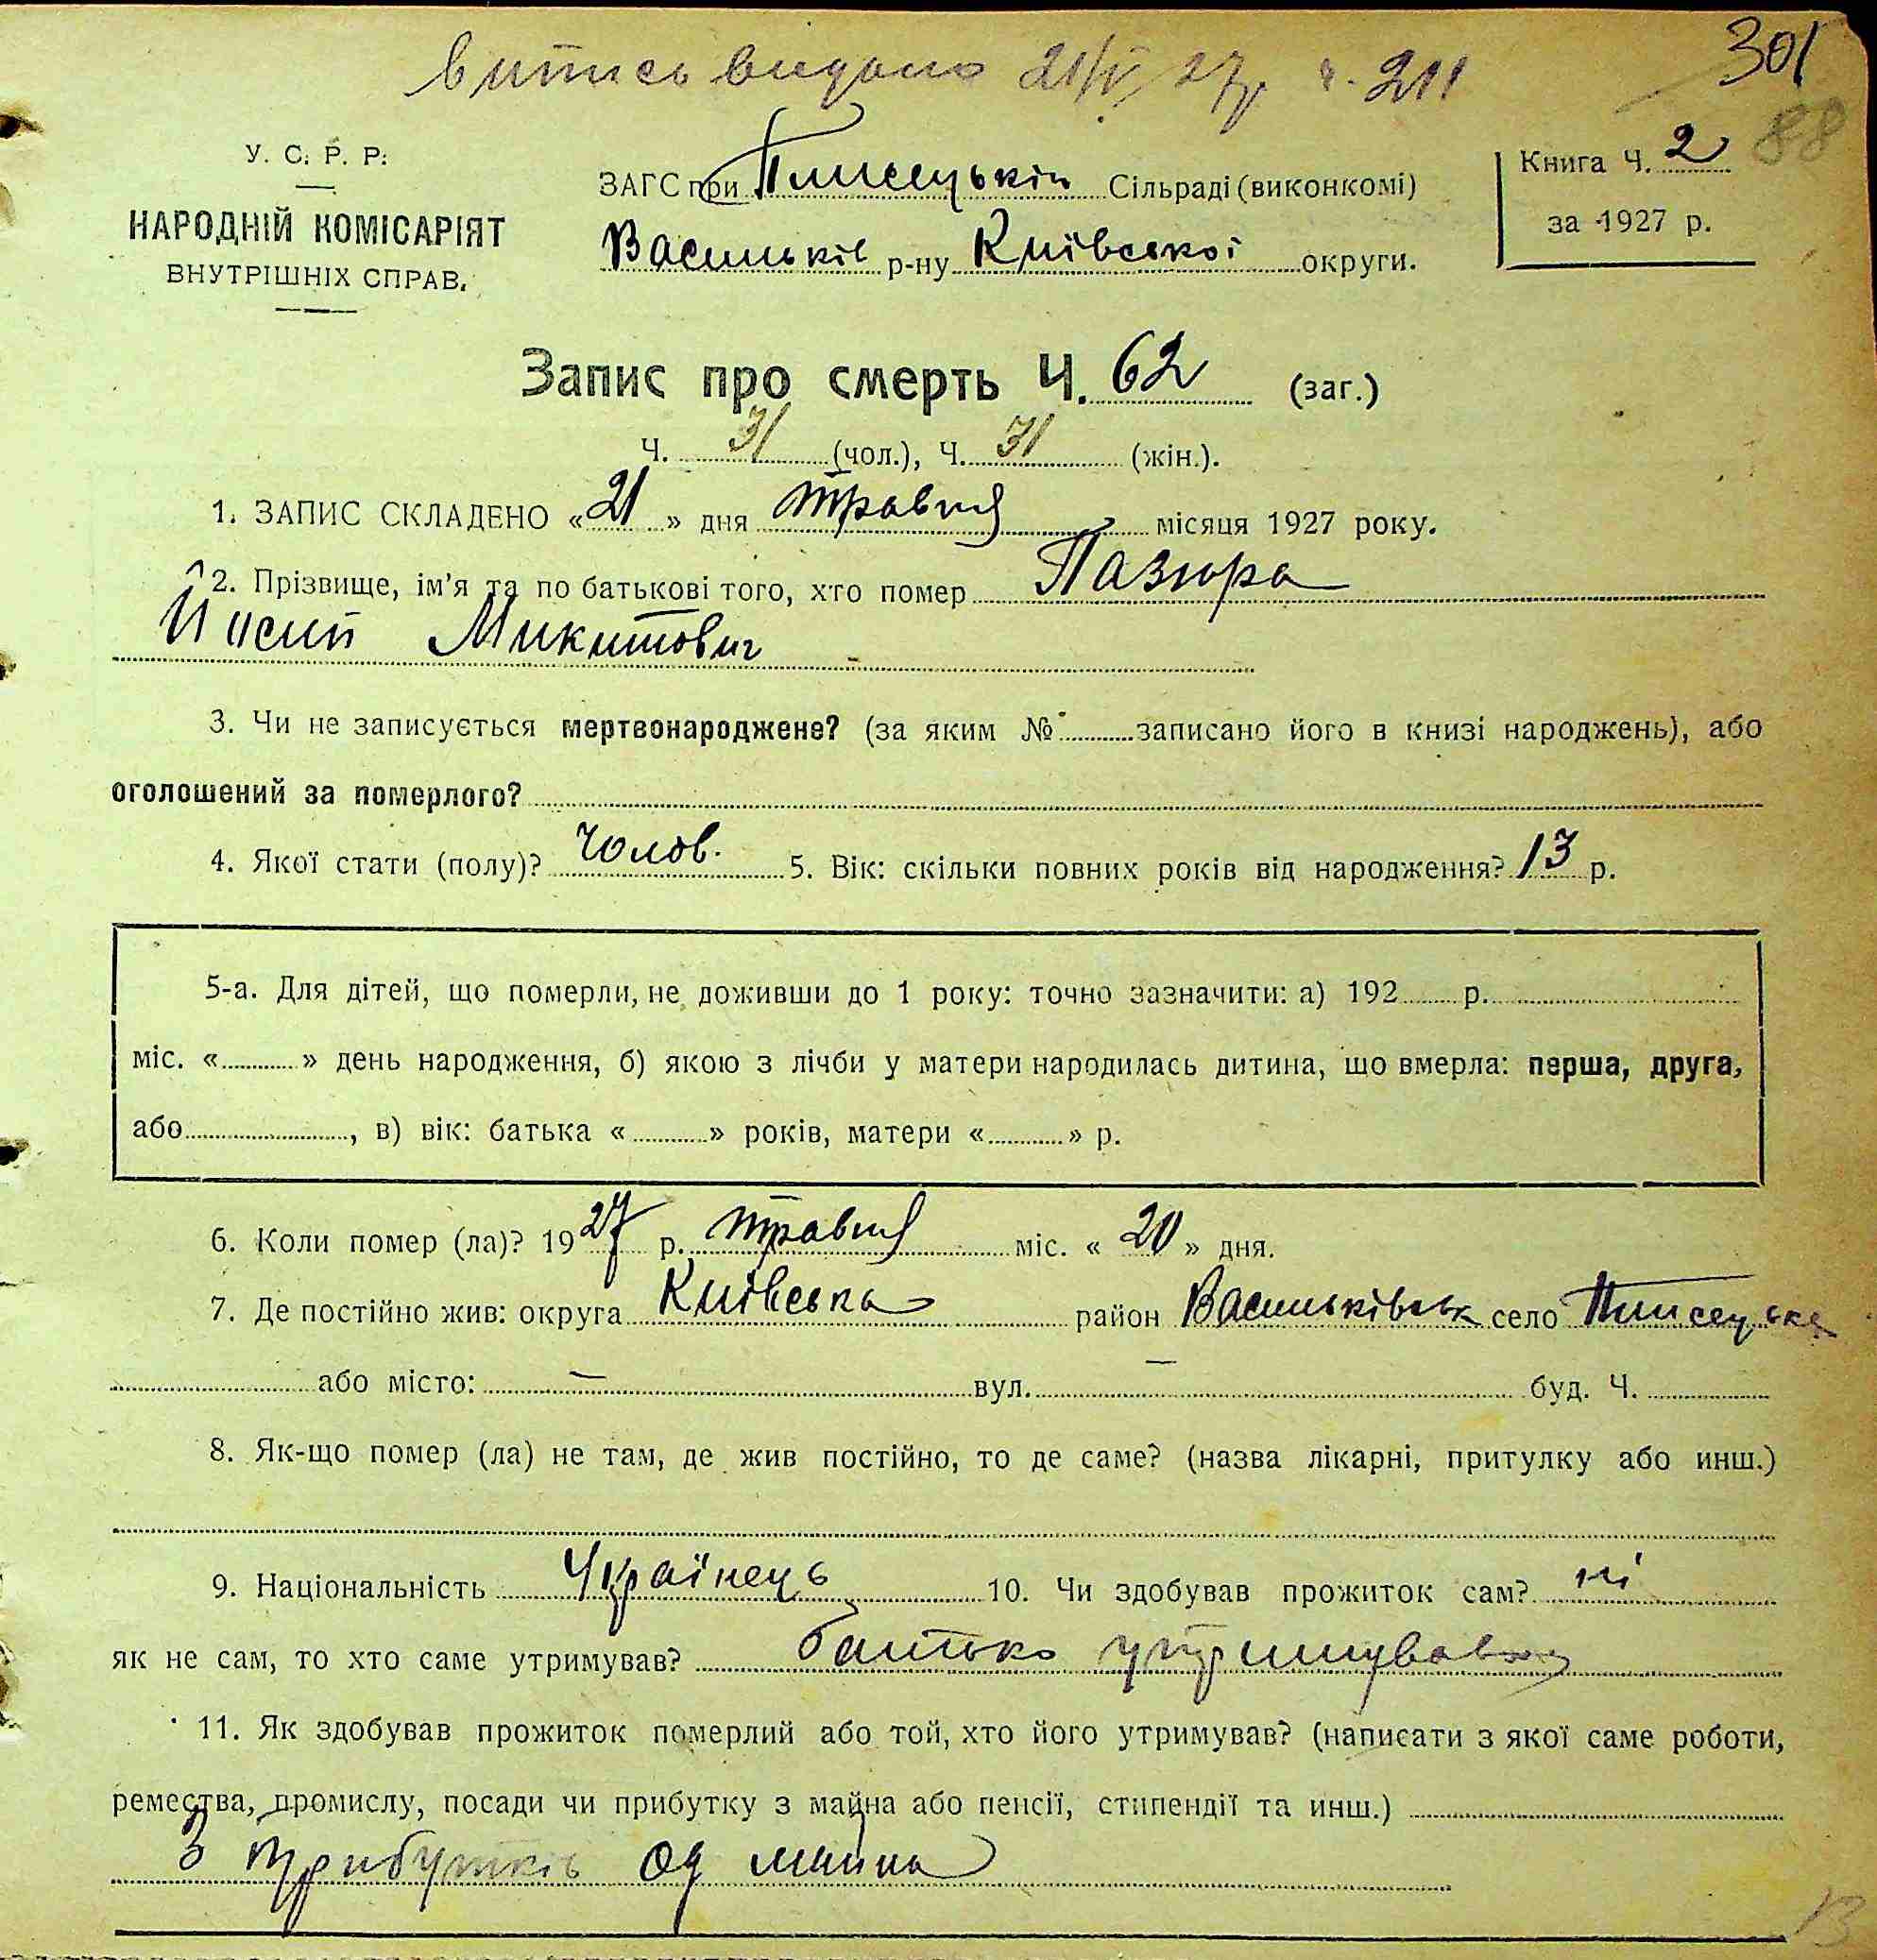 витись видано 21/V 27р. ч. 211
301
88
У. С. Р. Р.
НАРОДНІЙ КОМІСАРІЯТ
ВНУТРІШНІХ СПРАВ.
ЗАГС при Плисецькій Сільраді (виконкомі)
Васильків р-ну Київської округи.
Книга Ч. 2
за 1927 р.
Запис про смерть Ч. 62 (заг.)
Ч. 31 (чол.), Ч. 31 (жін.).
1. ЗАПИС СКЛАДЕНО «21» дня травня місяця 1927 року.
2. Прізвище, ім'я та по батькові того, хто помер Пазюра
Йосип Микитович
3. Чи не записується мертвонароджене? (за яким № записано його в книзі народжень), або
оголошений за померлого?
4. Якої стати (полу)? Чолов. 5. Вік: скільки повних років від народження? 13 р.
5-а. Для дітей, що померли, не доживши до 1 року: точно зазначити: а) 192 р.
міс. « » день народження, б) якою з лічби у матери народилась дитина, що вмерла: перша, друга,
або , в) вік: батька « » років, матери « » р.
6. Коли помер (ла)? 1927 р. травня міс. «20» дня.
7. Де постійно жив: округа Київська район Васильківськ село Плисецьке
або місто: — вул. — буд. Ч.
8. Як-що помер (ла) не там, де жив постійно, то де саме? (назва лікарні, притулку або инш.)
9. Національність Українець 10. Чи здобував прожиток сам? ні
як не сам, то хто саме утримував? батько
11. Як здобував прожиток померлий або той, хто його утримував? (написати з якої саме роботи,
ремества, промислу, посади чи прибутку з майна або пенсії, стипендії та инш.)
З прибутків од майна
13